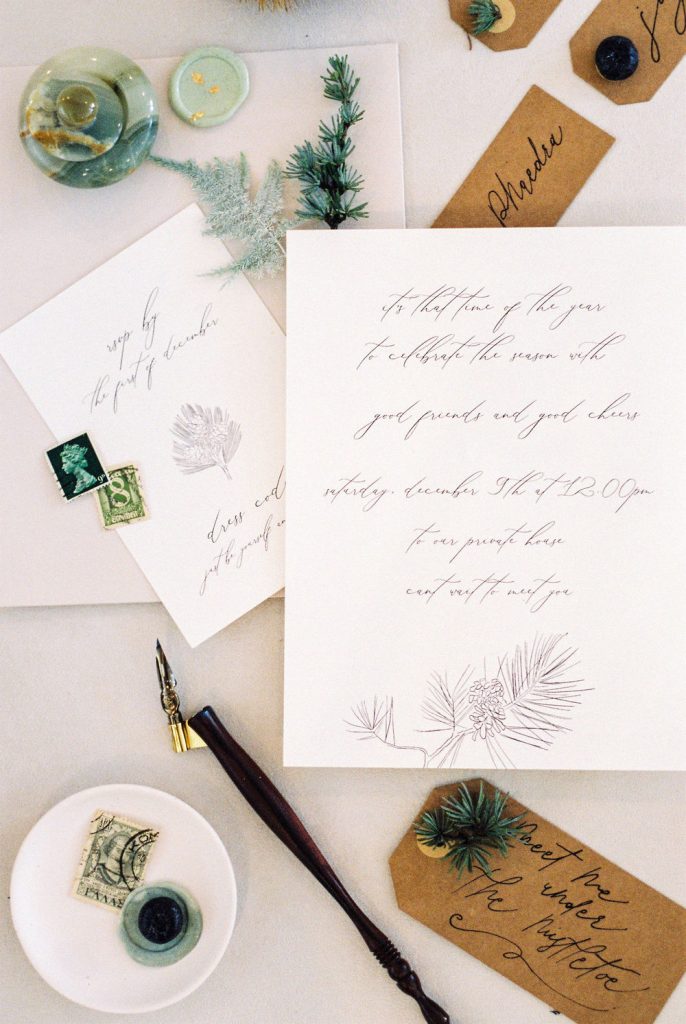 phaedra
rsvp by
the first of december
dress cod
just be yourself an
it's that time of the year
to celebrate the season with
good friends and good cheers
saturday, december 9th at 12.00pm
to our private house
cant wait to meet you
8
ΕΛΛΑΣ
meet me
under
the mistletoe